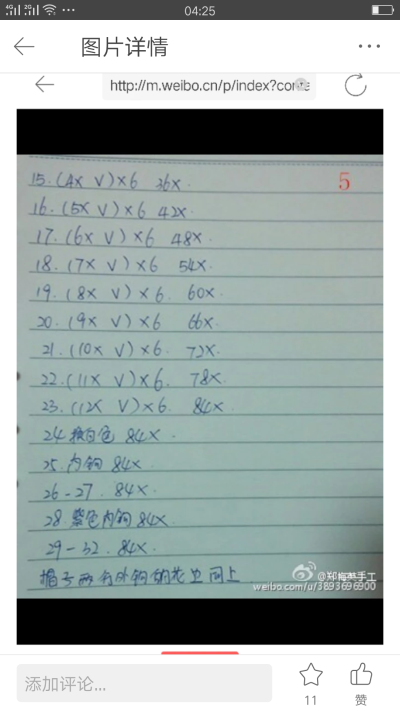 4G 2G ... 04:25
图片详情
http://m.weibo.cn/p/index?conte
5
15.(4X V)×6 36X.
16.(5X V)×6 42X
17.(6X V)×6 48X.
18.(7X V)×6 54X.
19.(8X V)×6. 60X
20.(9X V)×6 66X
21.(10X V)×6. 72X.
22.(11X V)×6. 78X.
23.(12X V)×6. 84X
24换白色 84X.
25.内钩 84X.
26-27. 84X.
28 紫色内钩84X.
29-32.84X.
帽子两勾外钩
同上
手工
weibo.com/u/3893696900
添加评论...
11
赞